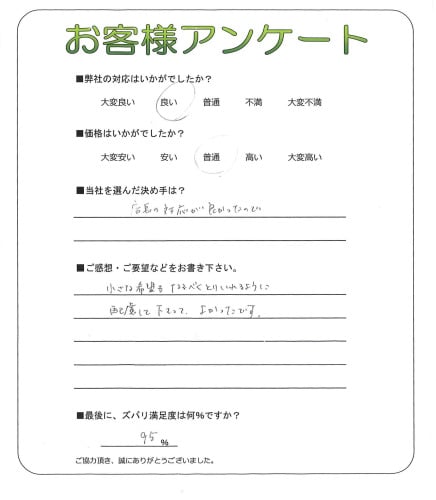 お客様アンケート
■弊社の対応はいかがでしたか?
大変良い 良い 普通 不満 大変不満
■価格はいかがでしたか?
大変安い 安い 普通 高い 大変高い
■当社を選んだ決め手は?
店長の対応が良かったので
■ご感想・ご要望などをお書き下さい。
小さな希望もなるべくとりいれるように
配慮して下さって、よかったです。
■最後に、ズバリ満足度は何%ですか?
95%
ご協力頂き、誠にありがとうございました。